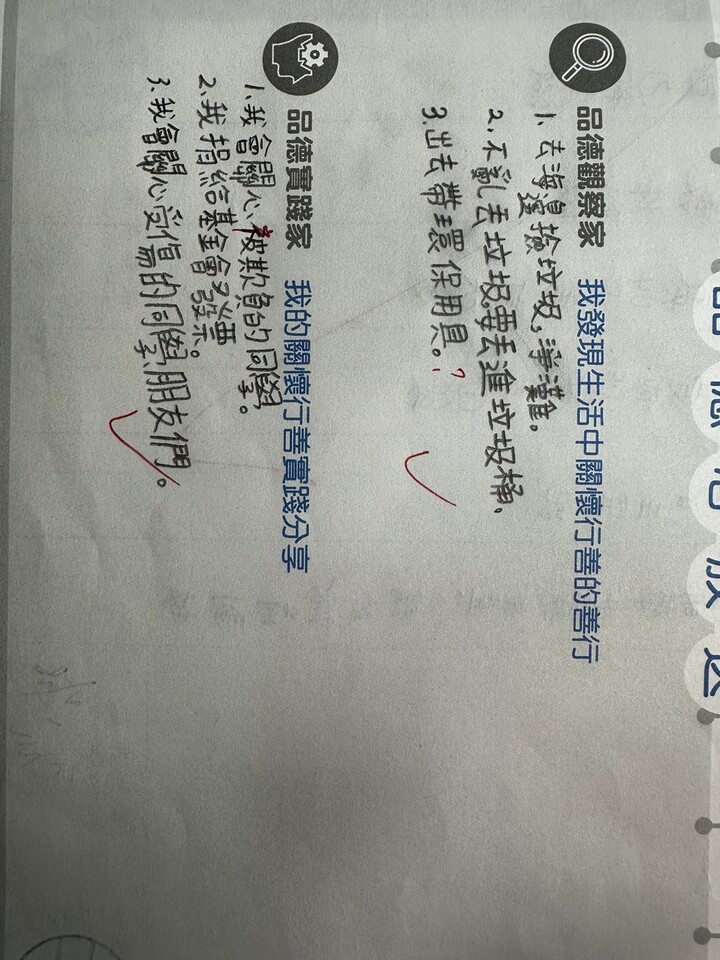 品德觀察家 我發現生活中關懷行善的善行
1、去海邊撿垃圾,淨灘。
2、不亂丟垃圾,要丟進垃圾桶、
3、出去帶環保用具。?
品德實踐家 我的關懷行善實踐分享
1、我會關心被欺負的同學。
2、我捐給基金會發票。
3、我會關心受傷的同學、朋友們。